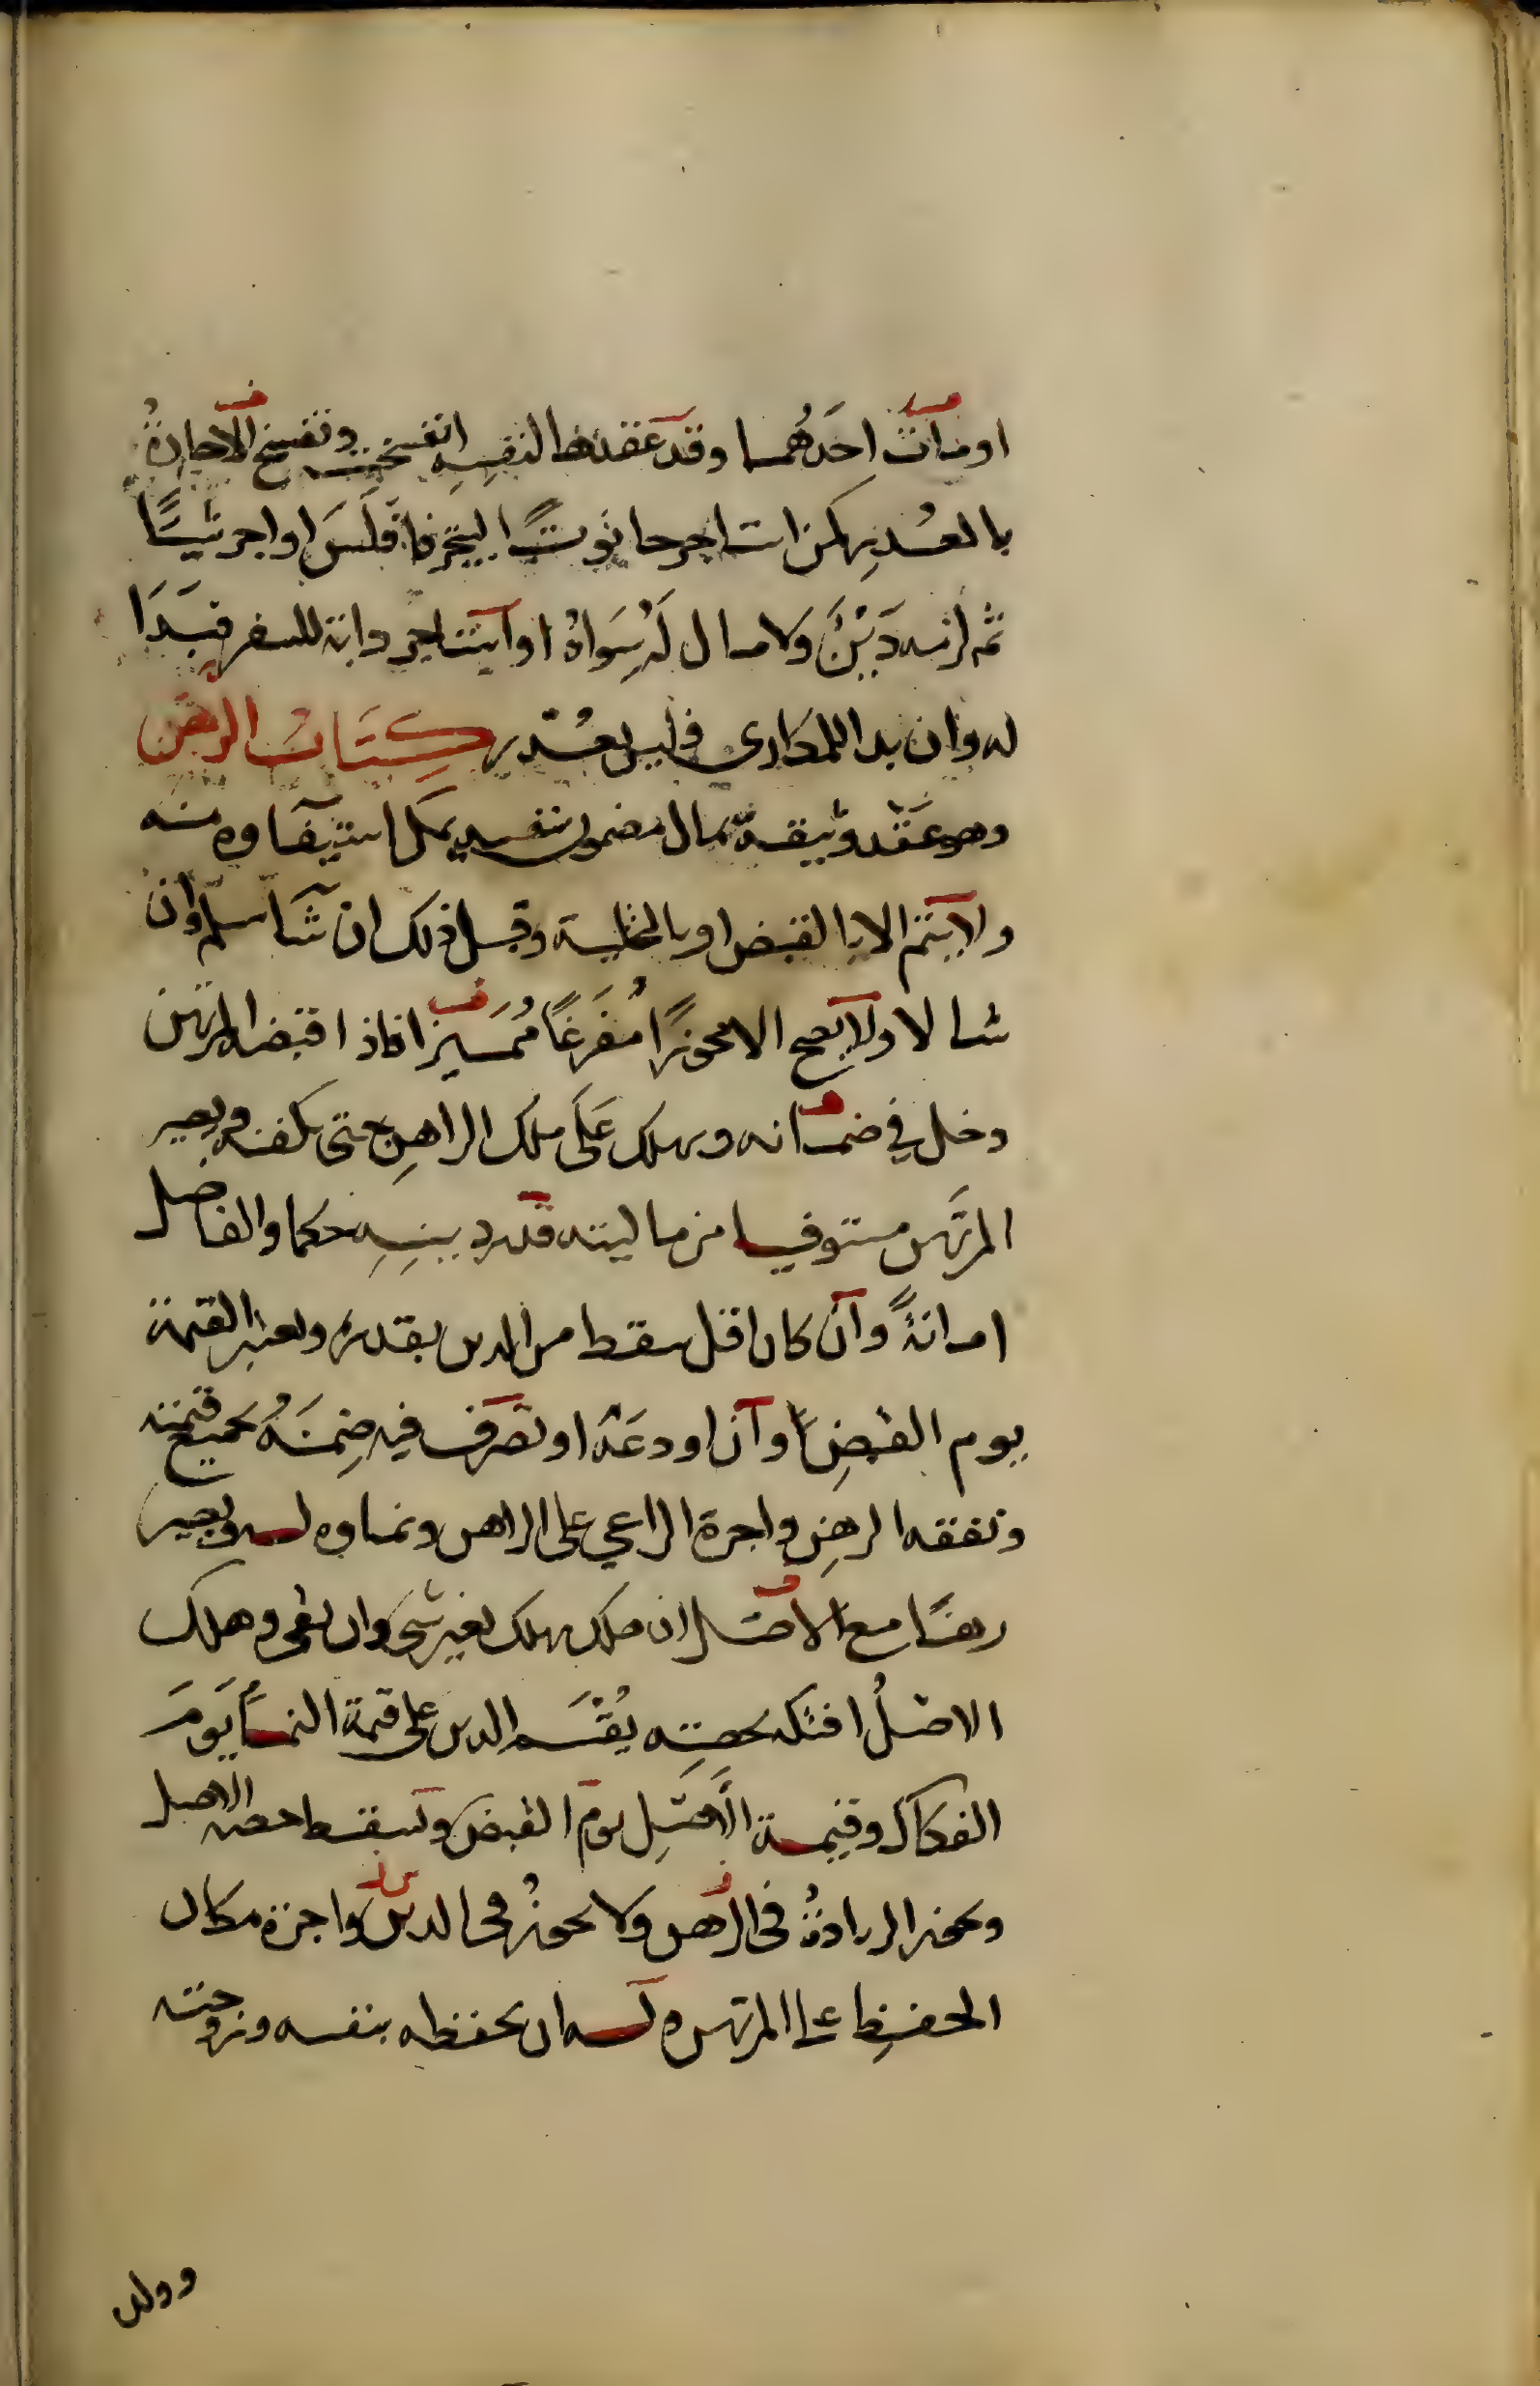 او مات احدهما وقد عقدها لنفسه انفسخت وتفسخ الاجارة
بالعذر كمن استاجر حانوتا ليتجر فافلس او اجر شيئا
ثم لزمه دين ولا مال له سواه او استاجر دابة للسفر فبدا
له وان بدا للمكاري فليس بعذر كتاب الرهن
وهو عقد وثيقة بمال مضمون بنفسه يمكن استيفاوه منه
ولا يتم الا بالقبض او بالتخلية وقبل ذلك ان شا سلم وان
شا لا ولا يصح الا محوزا مفرغا مميزا فاذا قبضه المرتهن
دخل في ضمانه ويهلك على ملك الراهن حتى يكفنه ويصير
المرتهن مستوفيا من ماليته قدر دينه حكما والفاضل
امانة وان كان اقل سقط من الدين بقدره وتعتبر القيمة
يوم القبض وان اودعه او تصرف فيه ضمنه بجميع قيمته
ونفقه الرهن واجرة الراعي على الراهن ونماوه له ويصير
رهنا مع الاصل ان هلك يهلك بغير شي وان بقي وهلك
الاصل افتكه بحصته يقسم الدين على قيمة النماء يوم
الفكاك وقيمة الاصل يوم القبض وتسقط حصة الاصل
وتجوز الزيادة في الرهن ولا تجوز في الدين واجرة مكان
الحفظ على المرتهن وله ان يحفظه بنفسه وزوجته
وولده